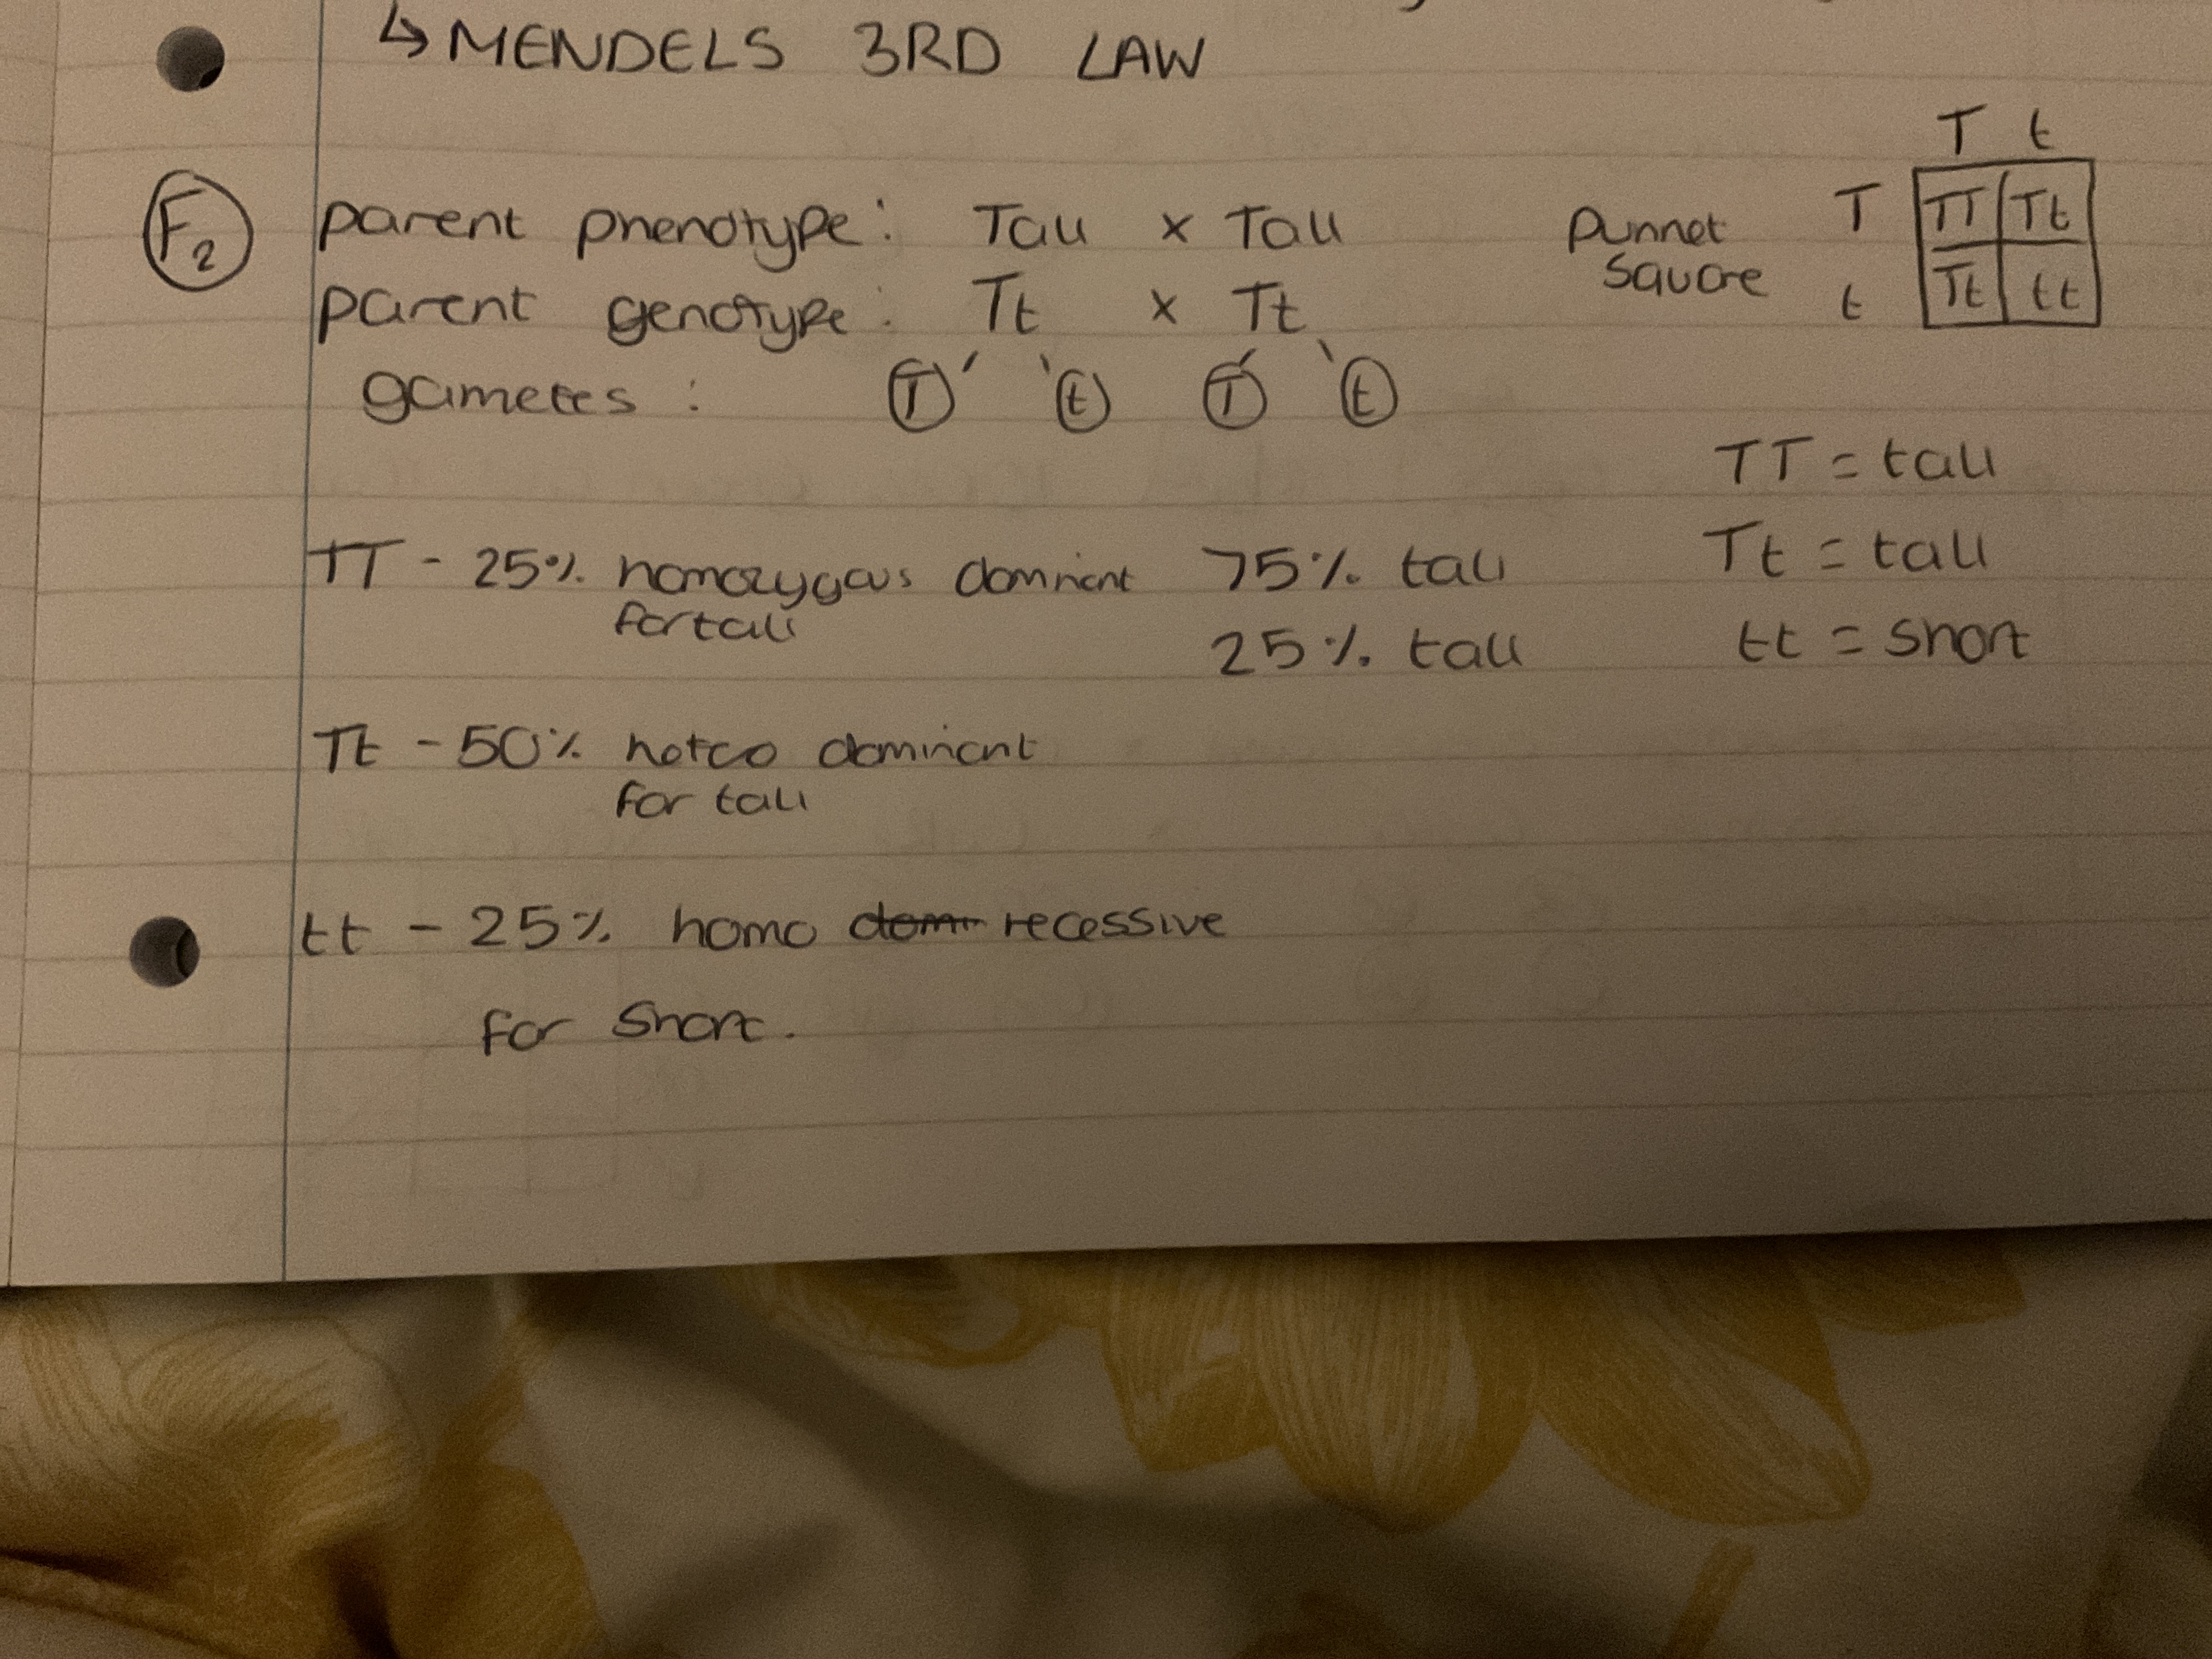 ↳ MENDELS 3RD LAW
F2
parent phenotype: Tall x Tall
parent genotype: Tt x Tt
gametes: T t T t
Punnet
Square
T t
T TT Tt
t Tt tt
TT = tall
Tt = tall
tt = short
TT - 25% homozygous dominent
for tall
75% tall
25% tall
Tt - 50% dominant
for tall
tt - 25% homo domi recessive
for short.